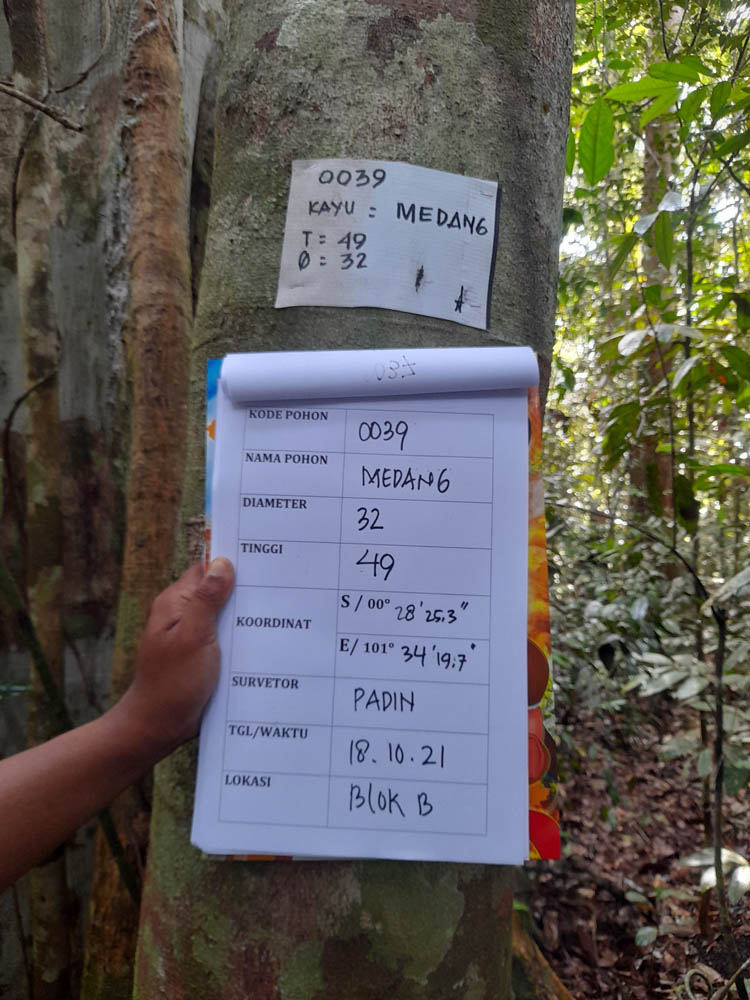 0039
KAYU : MEDANG
T = 49
Ø = 32
KODE POHON 0039
NAMA POHON MEDANG
DIAMETER 32
TINGGI 49
KOORDINAT S / 00° 28'25.3"
E/ 101° 34'19.7"
SURVETOR PADIN
TGL/WAKTU 18.10.21
LOKASI BLOK B